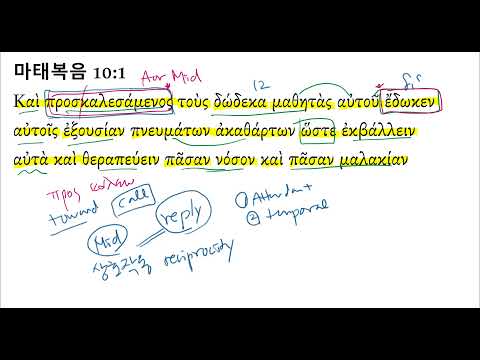 마태복음 10:1
Aor Mid
12
Καὶ προσκαλεσάμενος τοὺς δώδεκα μαθητὰς αὐτοῦ ἔδωκεν
αὐτοῖς ἐξουσίαν πνευμάτων ἀκαθάρτων ὥστε ἐκβάλλειν
αὐτὰ καὶ θεραπεύειν πᾶσαν νόσον καὶ πᾶσαν μαλακίαν
προς καλεω
toward call reply
① Attendant
② temporal
Mid
상호작용 reciprocity